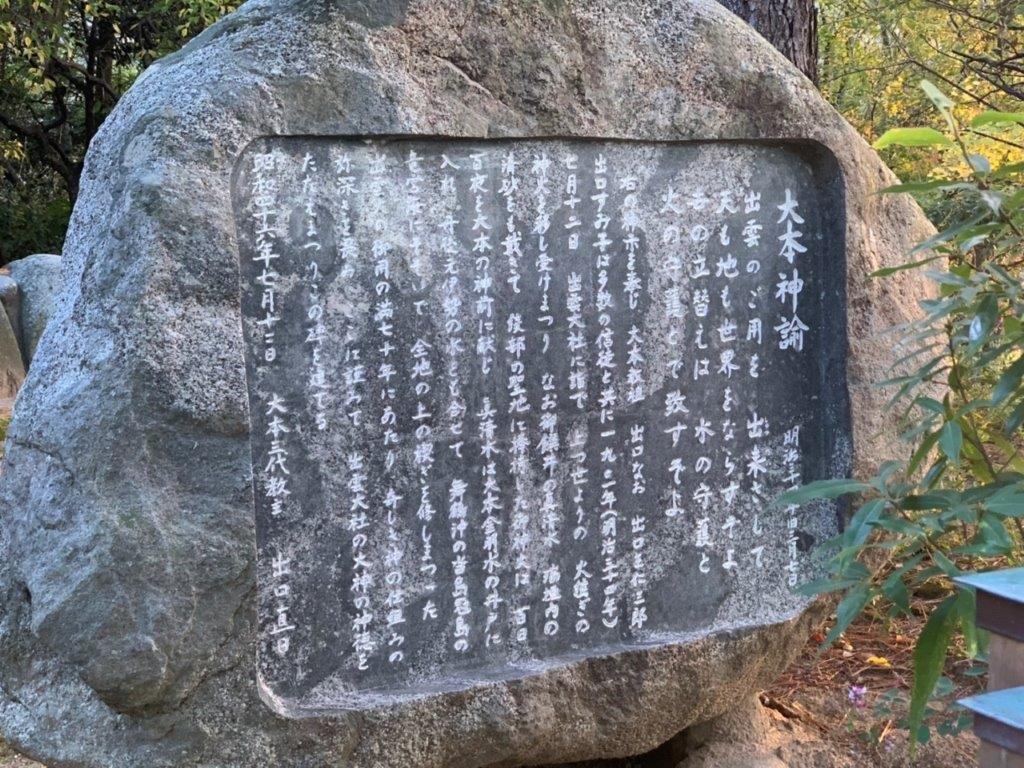 大本神諭
明治三十四年
出雲のご用を 出来さして
天も地も世界をならすぞよ
この立替えは 水の守護と
火の守護とで致すぞよ
右の神示を奉じ 大本教祖 出口なお 出口王仁三郎
出口すみ子は多数の信徒と共に一九〇一年(明治三十四年)
七月十二日 出雲大社に詣で 上つ世よりの 火継ぎの
神火を移し受けまつり なお御饌井の真清水 瑞垣内の
清砂をも戴きて 綾部の聖地に 神火は 百日
百夜を大本の神前に献じ 真清水は大本金明水の井戸に
入れ 元伊勢の水とを合せて 舞鶴沖の沓島冠島の
において 全地の上の禊ぎを修しまつった
出雲の御用の満七十年にあたり 奇しき神の仕組みの
弥栄を に 出雲大社の大神の神徳を
たたえまつりこの碑を建てる
昭和四十六年七月十二日 大本三代教主 出口直日